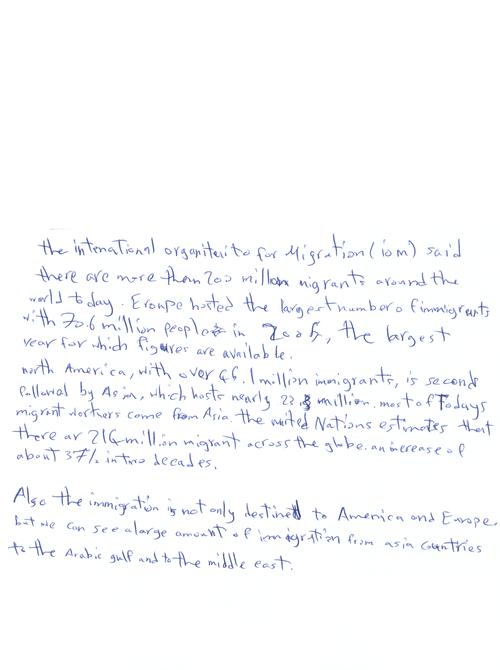 the intenational organiteito for Migration (iom) said
there are more them 200 million migrants around the
world today. Eroupe hosted the largest number of immigrants
with 70.6 million people in 2005, the largest
year for which figures are available.
north America, with over 46.1 million immigrants, is second
followed by Asia, which hosts nearly 22.3 million. most of Todays
migrant workers come from Asia. the united Nations estimates that
there ar 214 million migrant across the globe. an increase of
about 37% in two decades.
Also the immigration is not only destined to America and Europe.
but we can see a large amount of immigration from asia countries
to the Arabic gulf and to the middle east.